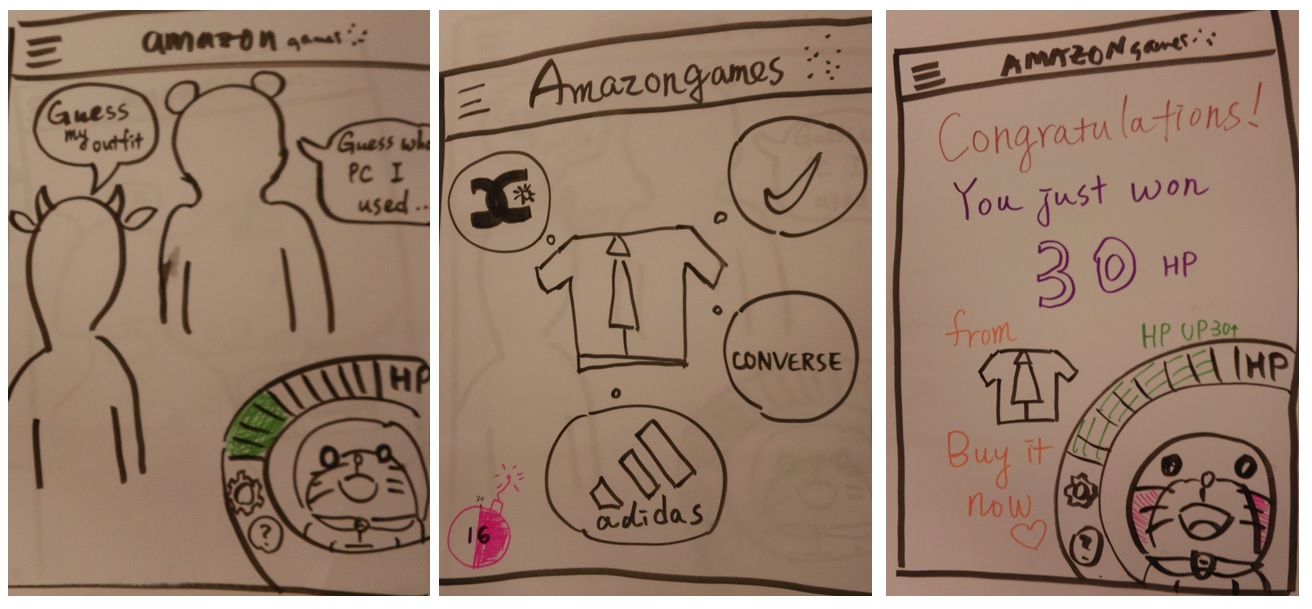 amazon games
Guess
my
outfit
Guess wh
PC I
used ..
HP
?
Amazongames
CONVERSE
adidas
16
AMAZON games
Congratulations!
You just won
30 HP
from
HP UP 30↑
HP
Buy it
now
?